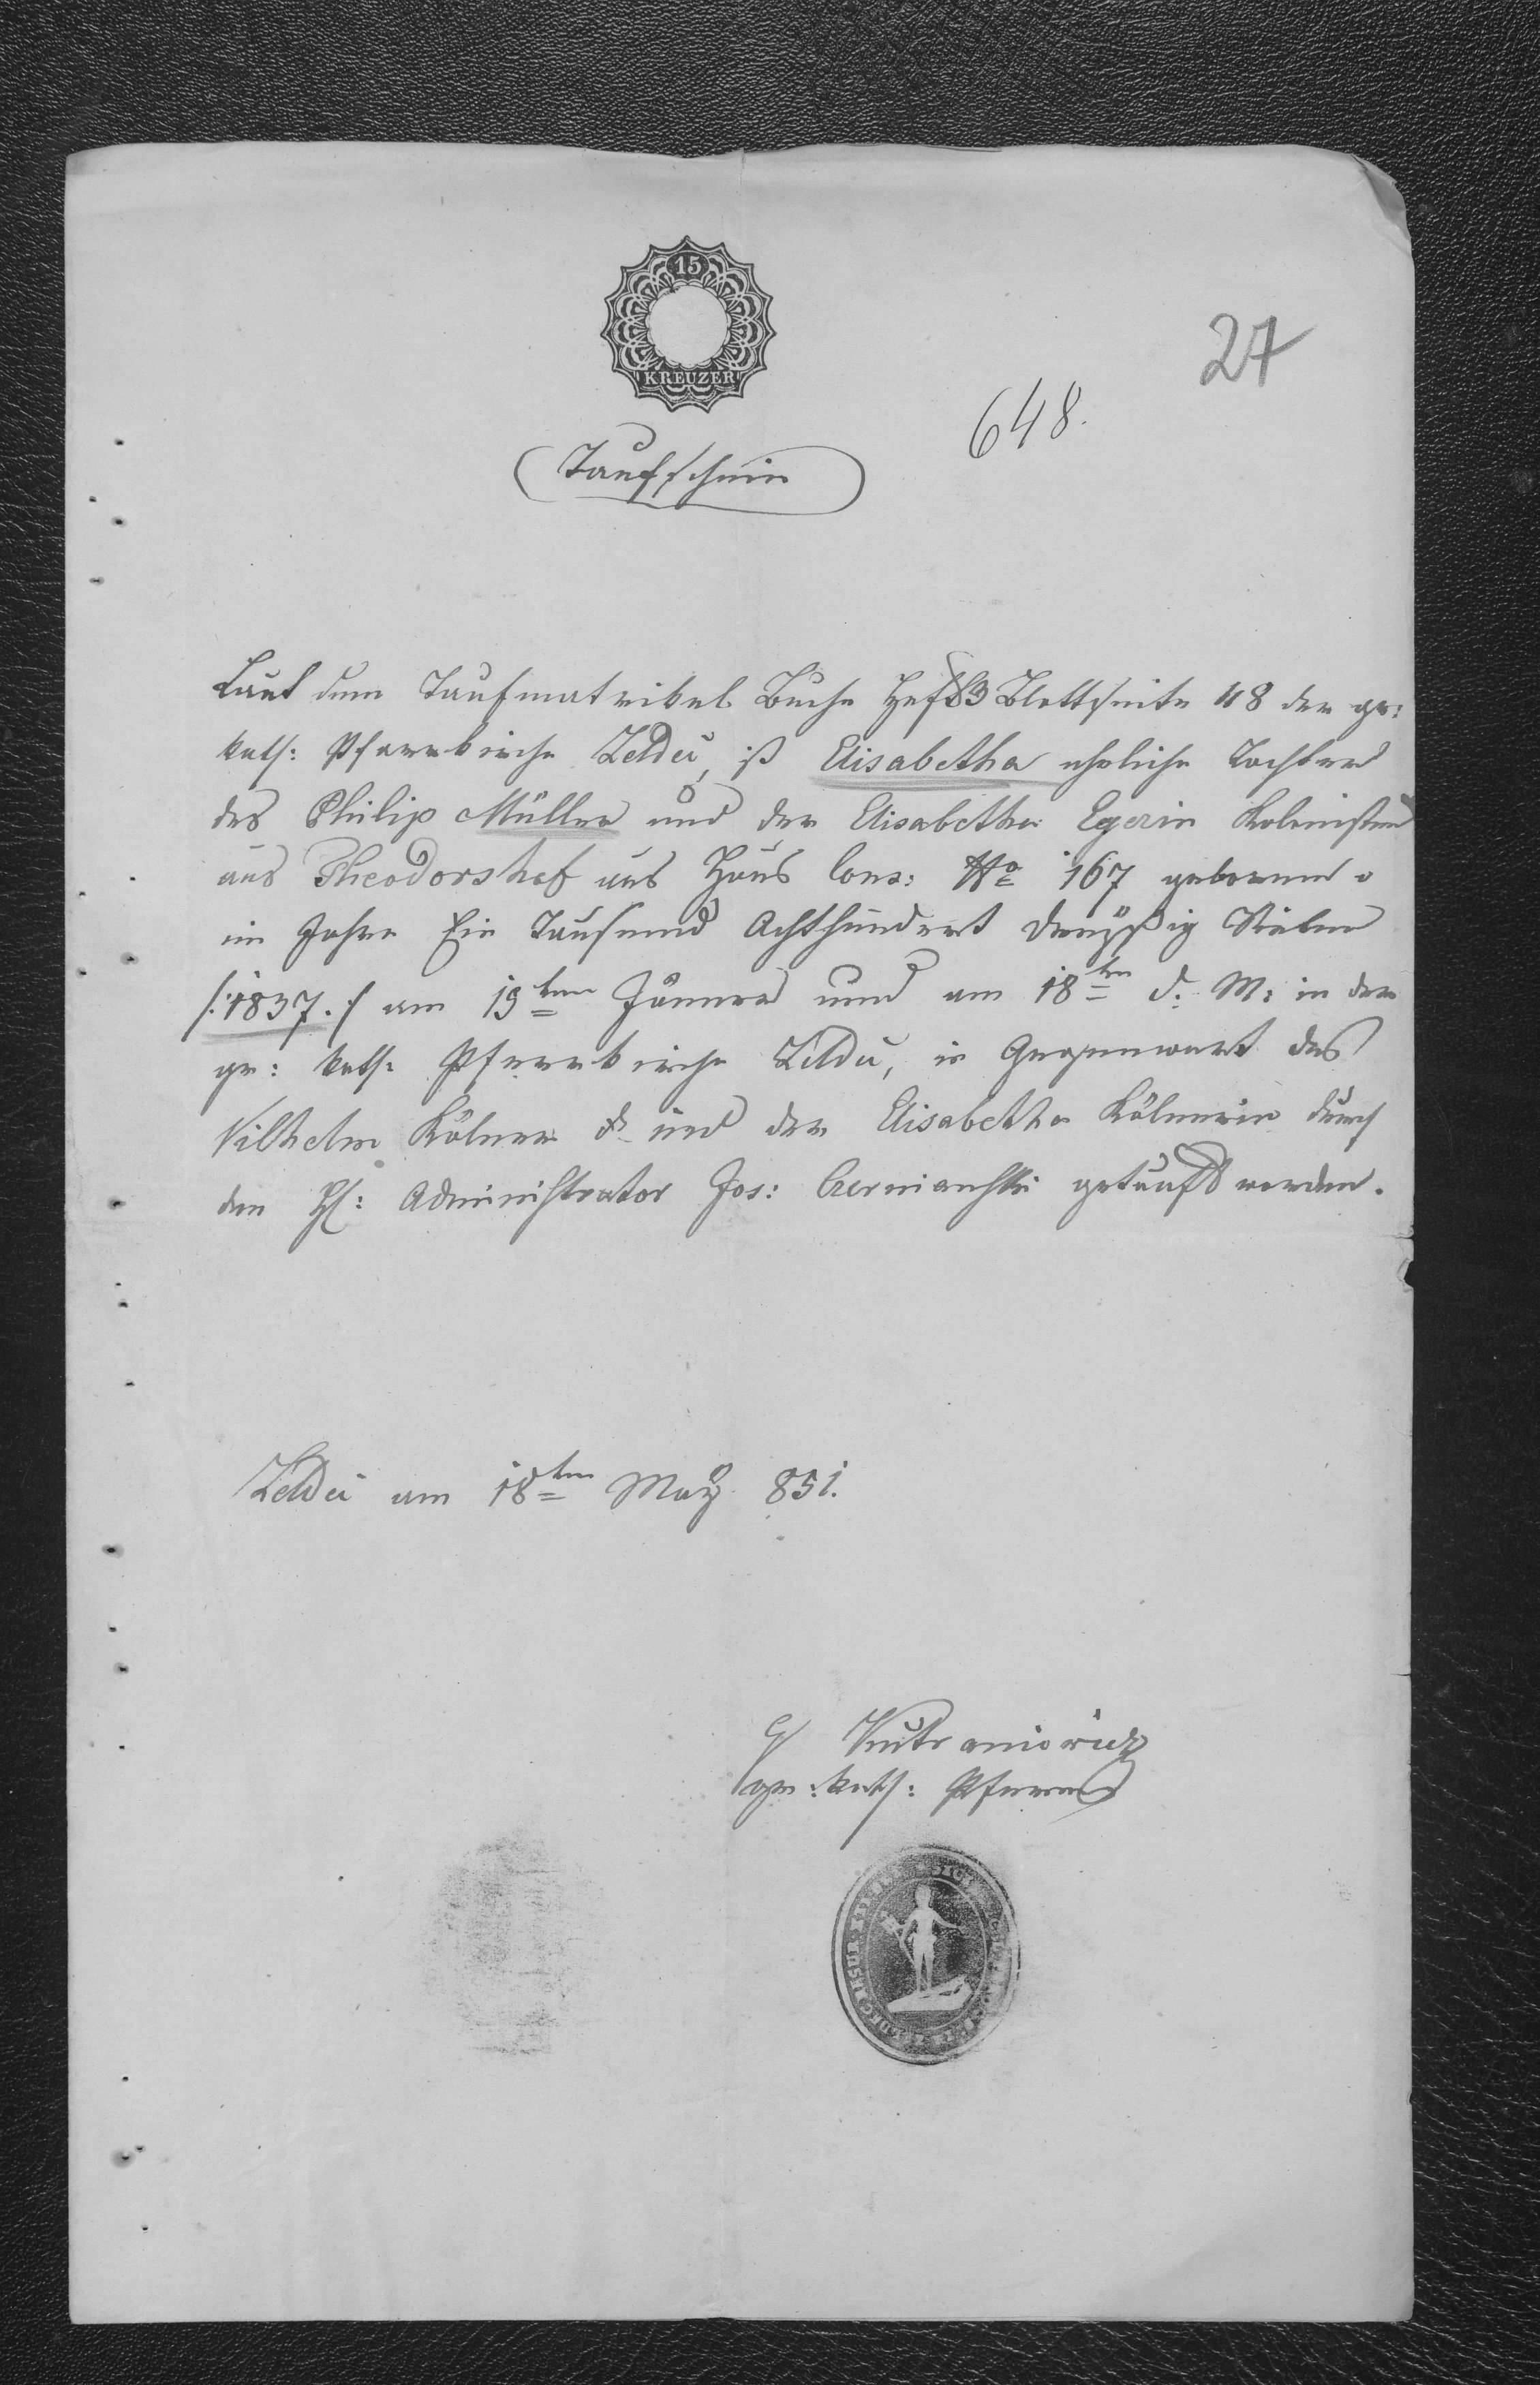 15
KREUZER
27
648.
Taufschein
Laut dem Taufmatrikel Buche Heft 3 Blattseite 48 der gr:
kath: Pfarrkirche Zeldei, ist Elisabetha eheliche Tochter
des Philip Müller und der Elisabetha Egerin Kolonisten
aus Theodorshof aus Haus Cons: No 167 geboren
im Jahre Ein Tausend Achthundert dreyßig Sieben
/:1837.:/ am 15ten Jänner und am 18ten d: M: in der
gr: kath: Pfarrkirche Zeldei, in Gegenwart des
Vilhelm Kölner und der Elisabetha Kölnerin durch
den H: Administrator Jos: getauft worden.
Zeldei am 18ten May 851.
gr: kath: Pfarrer